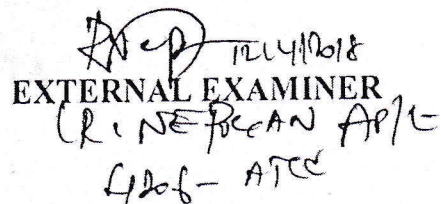 12/4/2018
EXTERNAL EXAMINER
(R. NEPOLEAN AP/E
4206- ATCE